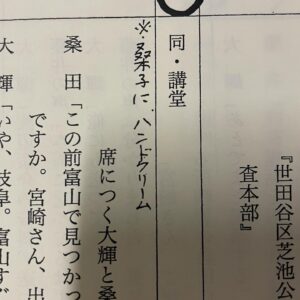 『世田谷区芝池公
査本部』
同・講堂
※桑子に、ハンドクリーム
席につく大輝と桑
桑 田「この前富山で見つかっ
ですか。宮崎さん、出
大 輝「いや、岐阜。富山すぐ